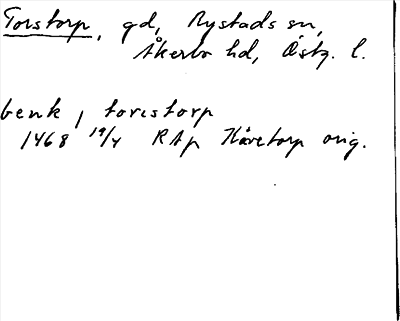 Torstorp, gd, Rystads sn,
Åkerbo hd, Östg. l.
benk i toristorp
1468 19/4 RAp Håretorp orig.